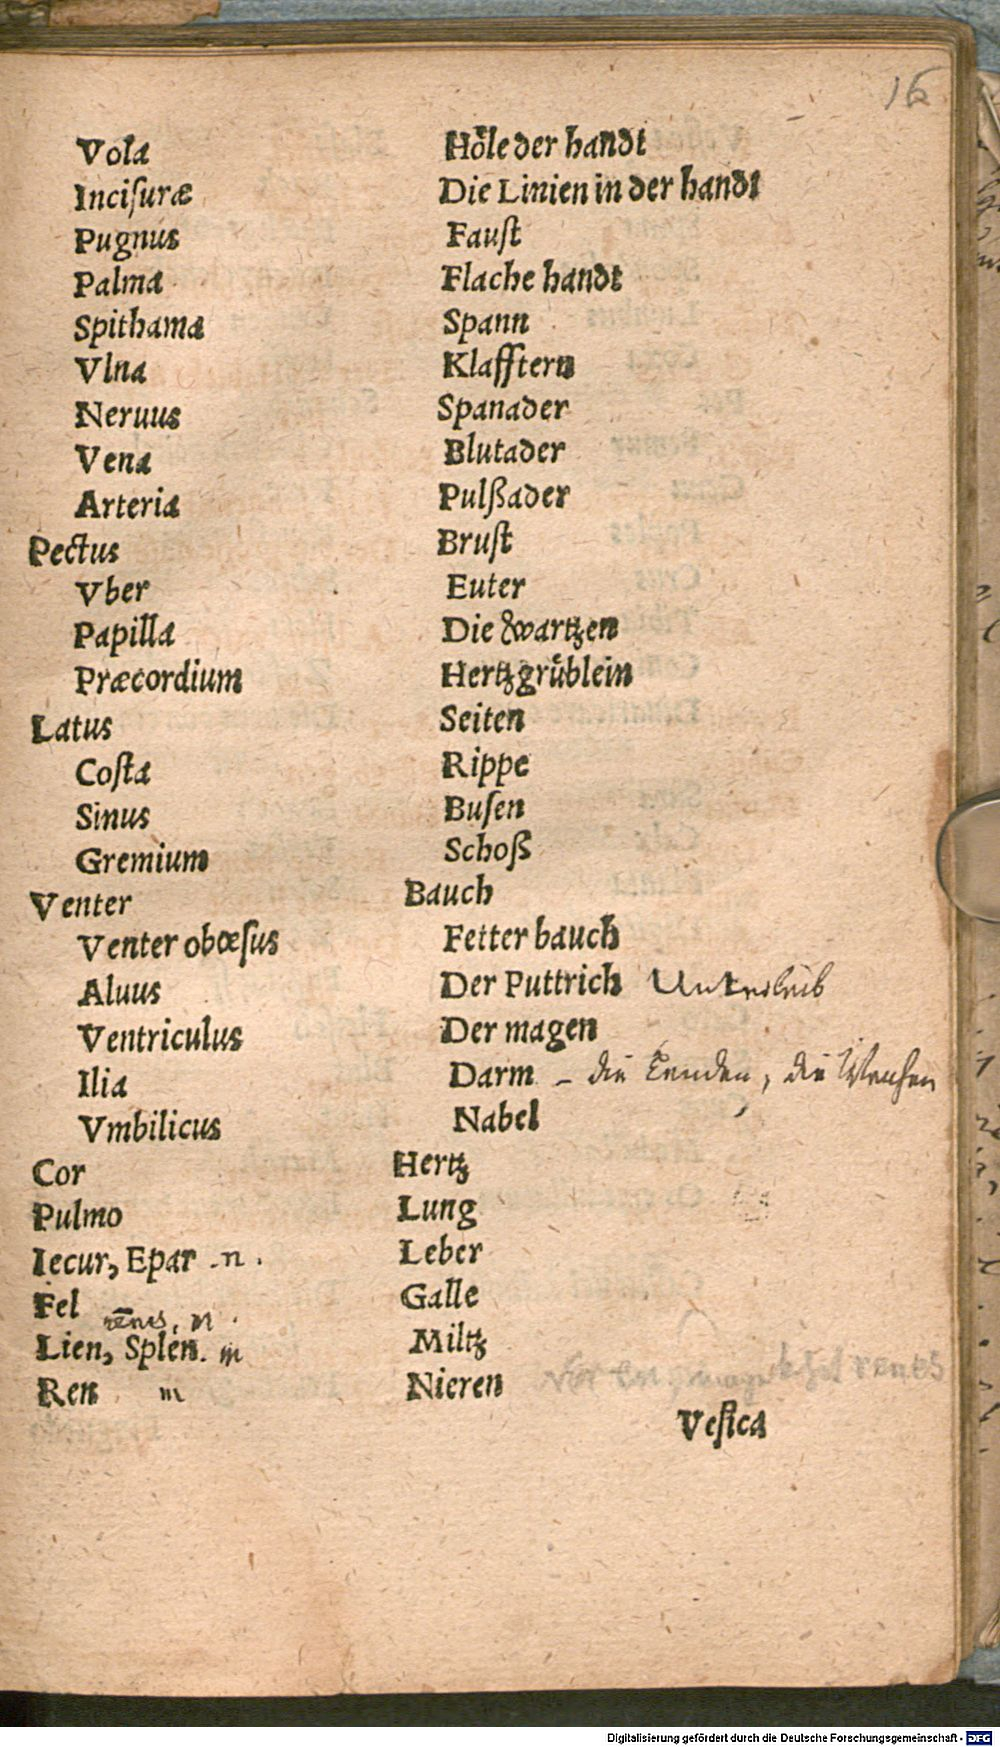 16
Vola Hőle der handt
Inciſuræ Die Linien in der handt
Pugnus Fauſt
Palma Flache handt
Spithama Spann
Vlna Klafftern
Neruus Spanader
Vena Blutader
Arteria Pulßader
Pectus Bruſt
Vber Euter
Papilla Die wartzen
Præcordium Hertzgrůblein
Latus Seiten
Coſta Rippe
Sinus Buſen
Gremium Schoß
Venter Bauch
Venter obœſus Fetter bauch
Aluus Der Puttrich Unterleib
Ventriculus Der magen
Ilia Darm – die Lenden, die Weichen
Vmbilicus Nabel
Cor Hertz
Pulmo Lung
Iecur, Epar n.
Leber
Fel Galle
Lien, Splen. m Miltz
Ren m Nieren renes
Veſica
Digitalisierung gefördert durch die Deutsche Forschungsgemeinschaft - DFG